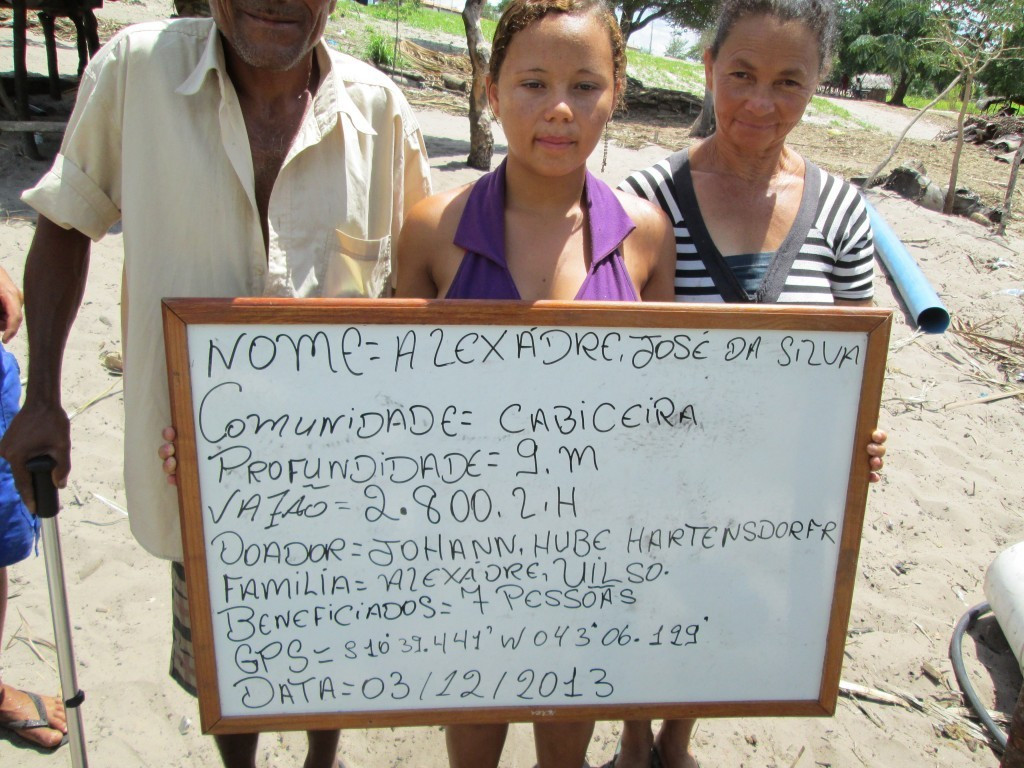 NOME= ALEXÁDRE, JOSÉ DA SILVA
COMUNIDADE= CABICEIRA
PROFUNDIDADE= 9.M
VAZÃO= 2.800.L.H
DOADOR= JOHANN, HUBE HARTENSDORFR
FAMILÍA= ALEXADRE, UILSO.
BENEFICIADOS= 7 PESSOAS
GPS= S10°39.441' W 043°06.199'
DATA= 03/12/2013